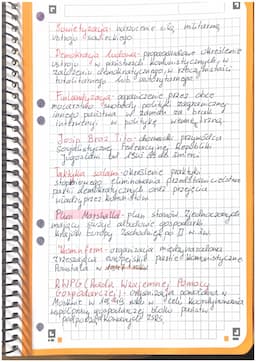 Sowietyzacja - narzucenie siłą militarną
ustroju radzieckiego.
Demokracja ludowa - propagandowe określenie
ustroju w państwach komunistycznych, w
założeniu demokratycznego, w rzeczywistości
totalitarnego lub autorytarnego.
Finlandyzacja - ograniczenie przez obce
mocarstwo swobody polityki zagranicznej
innego państwa w zamian za brak
interwencji w politykę wewnętrzną.
Josip Broz Tito - przywódca
Socjalistycznej Federacyjnej Republiki
Jugosławii od do śmierci.
Taktyka salami - określenie praktyki
stopniowego eliminowania przedstawicielstwa
partii demokratycznych oraz przejęcia
władzy przez komunistów
Plan Marshalla - plan Stanów Zjednoczonych
mający służyć odbudowie gospodarki
krajów Europy Zachodniej po II w. św.
Kominform - organizacja międzynarodowa
zrzeszająca europejskie partie komunistyczne
Powstała w 1947 r.
RWPG (Rada Wzajemnej Pomocy
Gospodarczej) - organizacja powołana w
Moskwie w 1949 roku w celu koordynowania
współpracy gospodarczej bloku państw
podporządkowanych ZSRS.